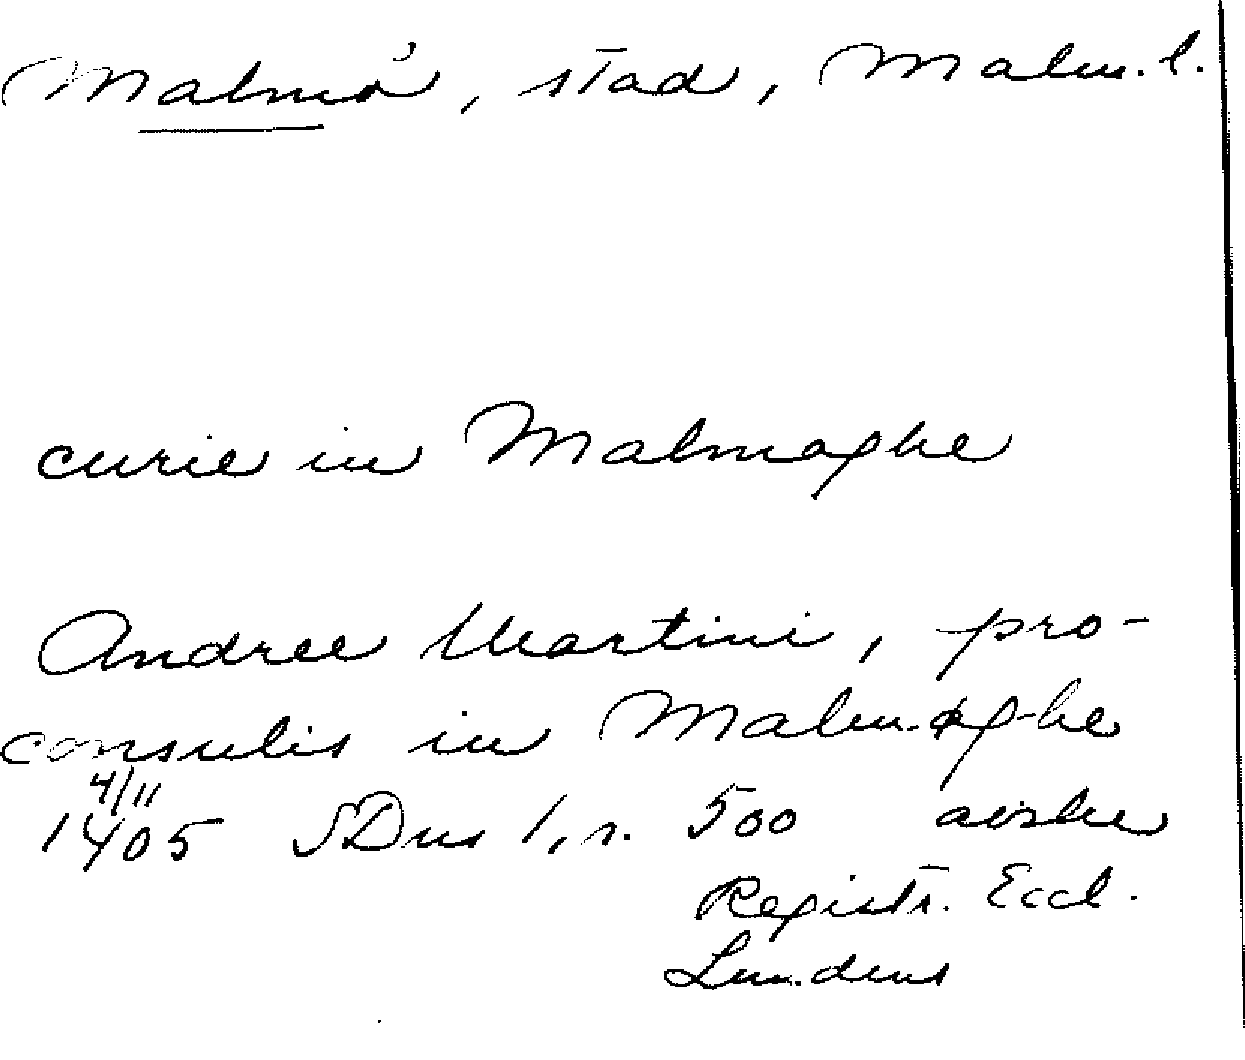 Malmö, stad, Malm. l.
curie in Malmoghe
Andree Martini, pro-
consulis in Malmoghe
4/11
1405 SDns 1, s. 500 avskr
Registr. Eccl.
Lundens